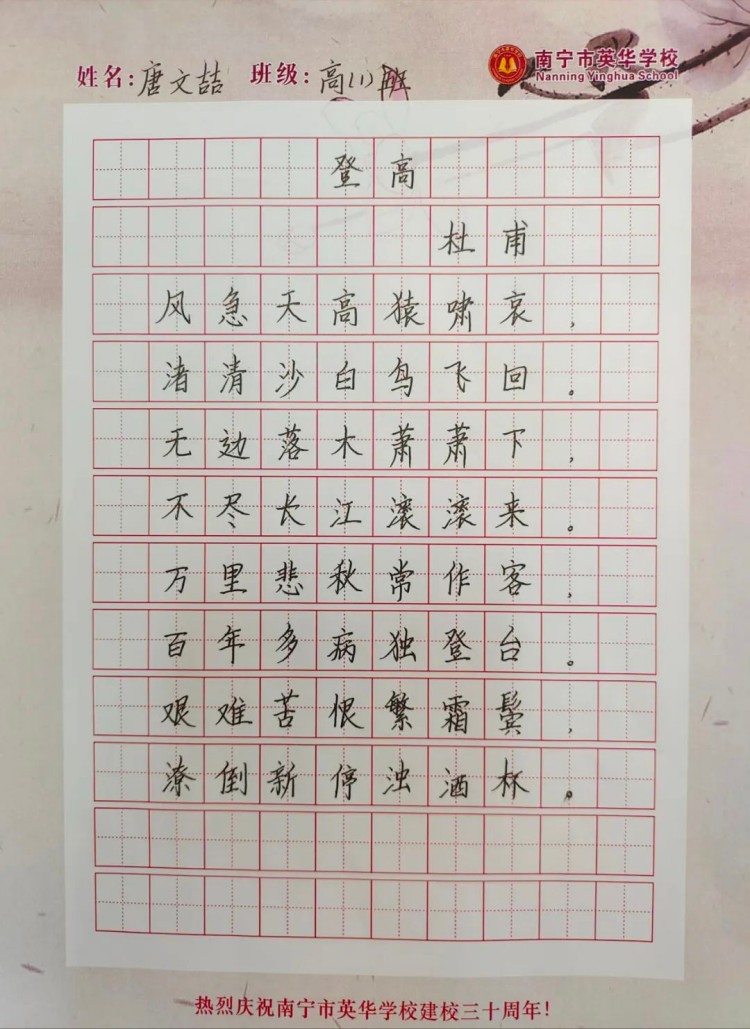 南宁市英华学校
Nanning Yinghua School
姓名:唐文喆 班级:高(1)班
登高
杜甫
风急天高猿啸哀,
渚清沙白鸟飞回。
无边落木萧萧下,
不尽长江滚滚来。
万里悲秋常作客,
百年多病独登台。
艰难苦恨繁霜鬓,
潦倒新停浊酒杯。
热烈庆祝南宁市英华学校建校三十周年!